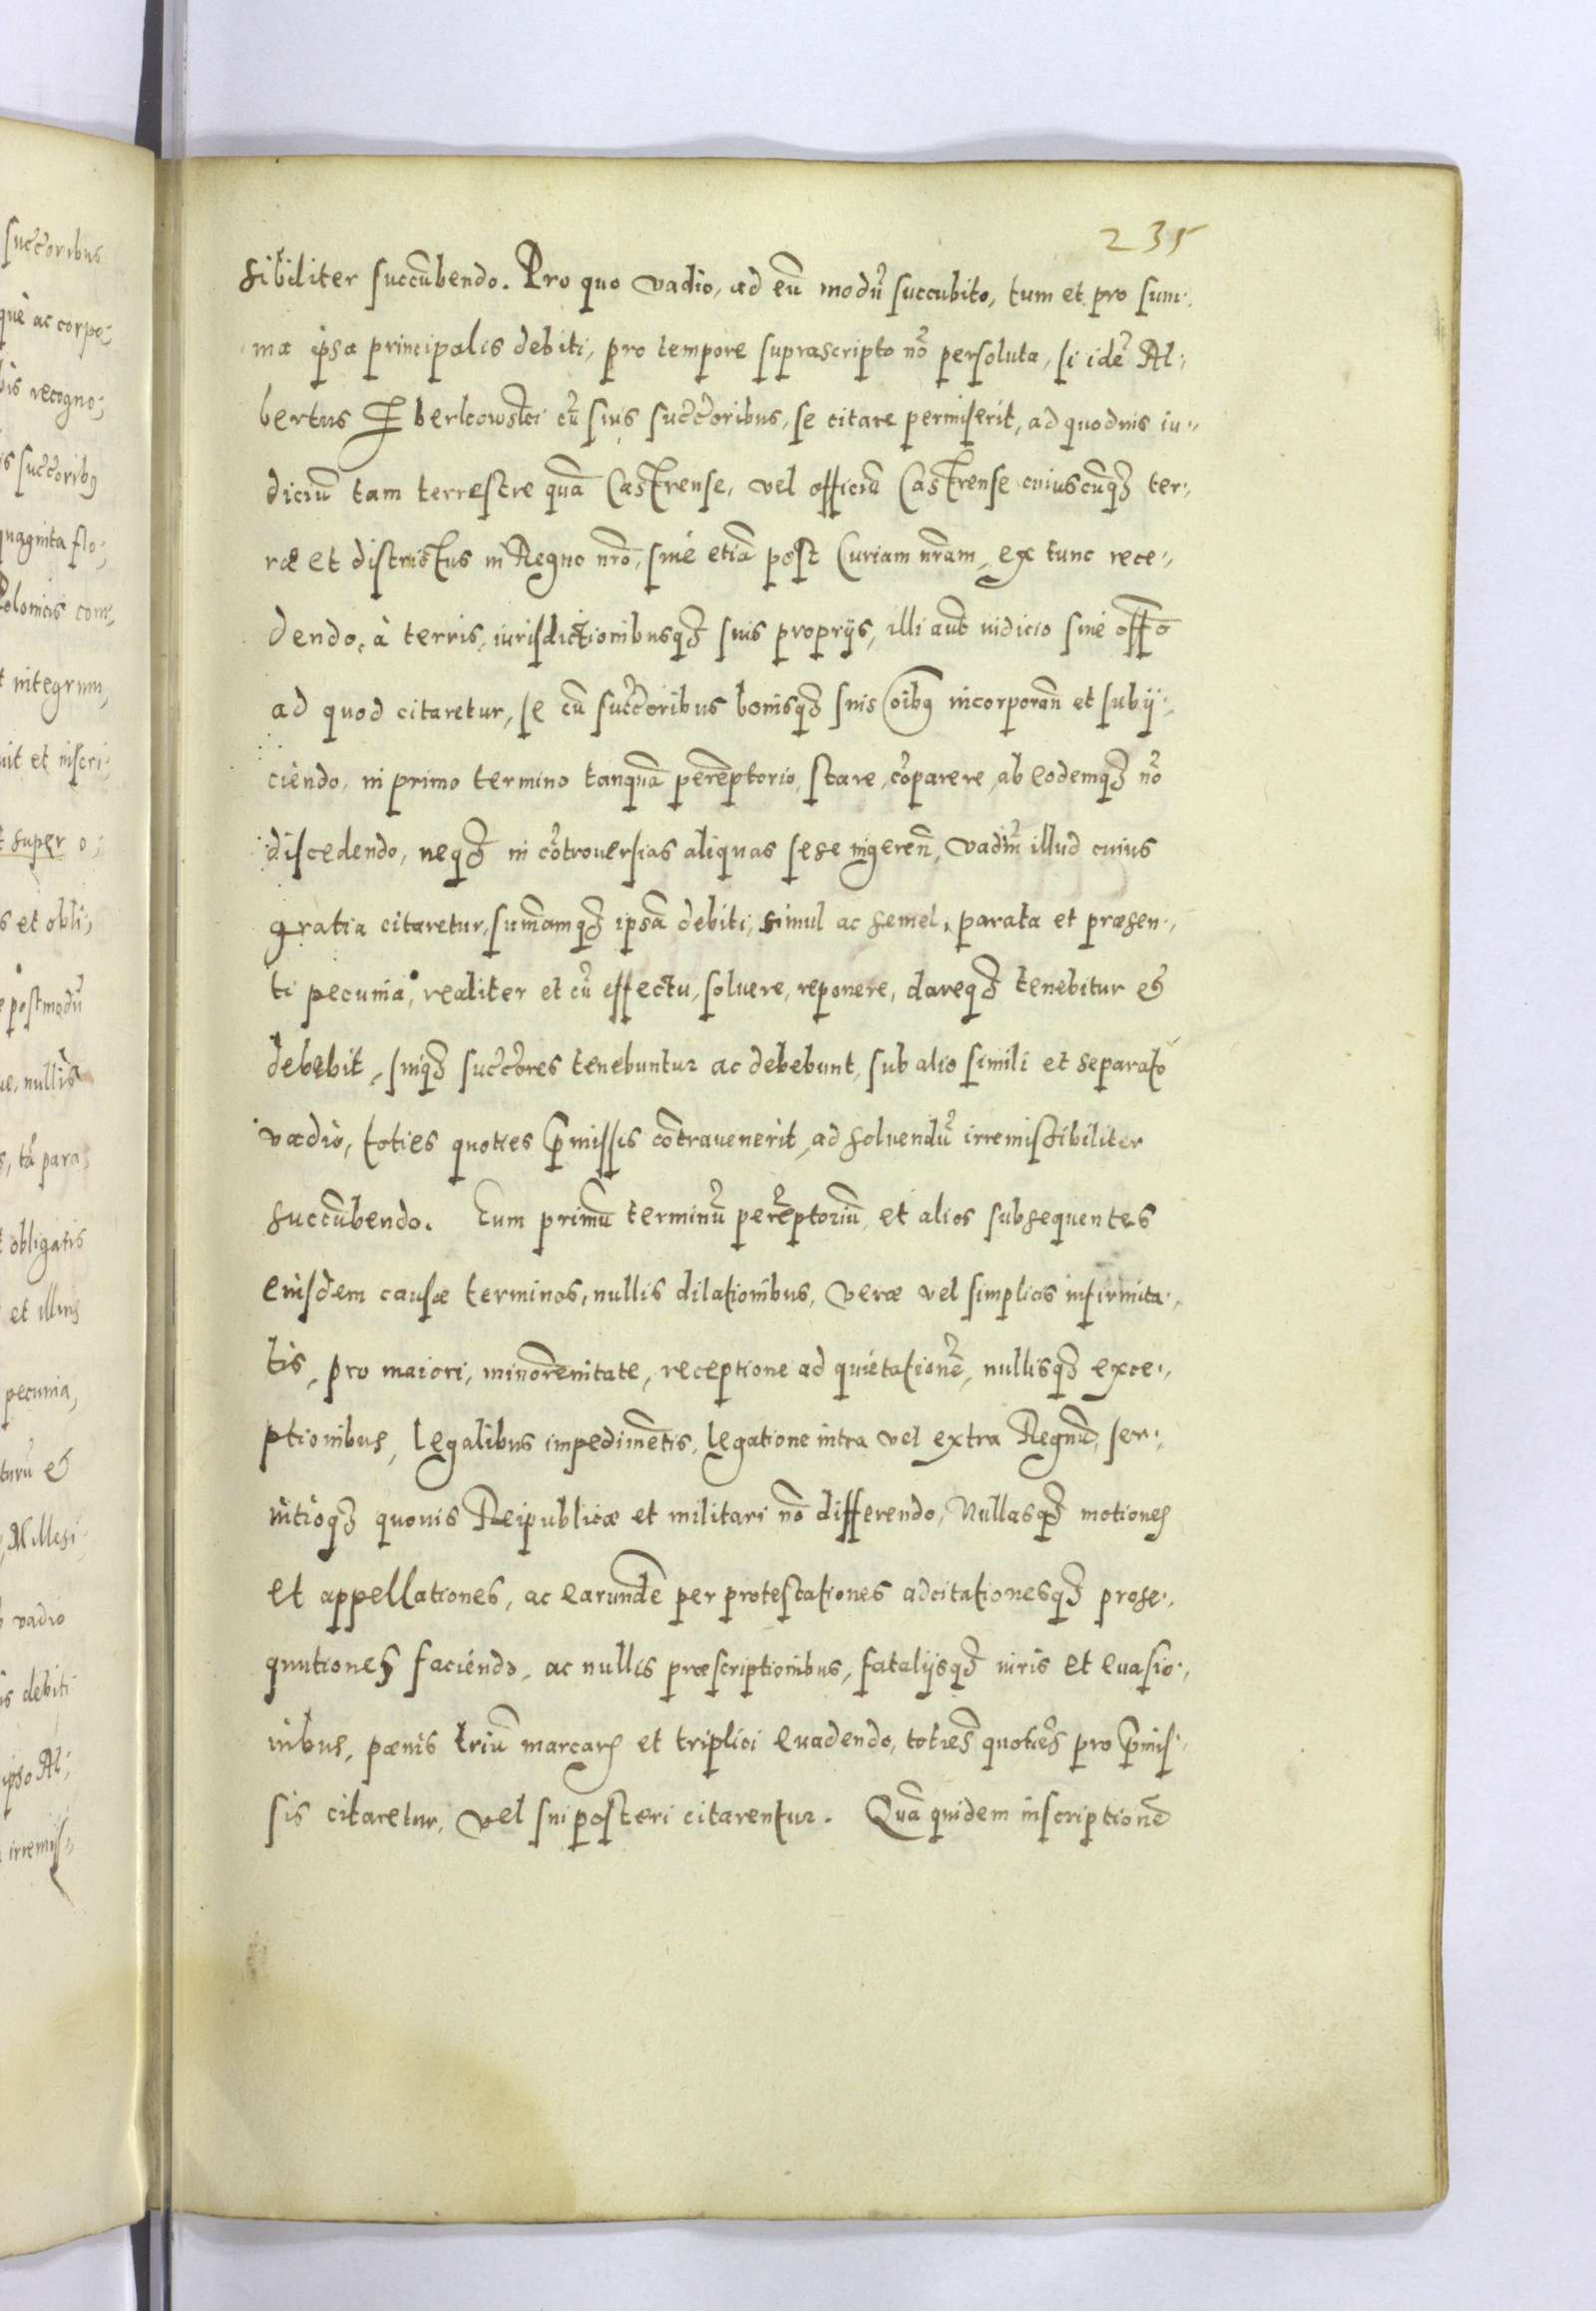 235
sibiliter succũbendo. Pro quo vadio, ad eũ modũ succubito, tum et pro sum:
ma ipsa principalis debiti, pro tempore suprascripto nõ persoluta, si idẽ Al:
bertus cũ suis succ̃oribus, se citare permiserit, ad quoduis iu:
diciũ tam terrestre quã Castrense, vel officiũ Castrense cuiuscũq3 ter:
ræ et districtus in Regno nr̃o, siue etiã post Curiam nr̃am, ex tunc rece:
dendo, à terris, iurisdictionibusq3 suis proprijs, illi aut̃ iudicio siue off̃o
ad quod citaretur, se cũ succ̃oribus bonisq3 suis oĩbq incorporañ et subij:
ciendo, in primo termino tanquã perẽptorio, stare, cõparere, ab eodemq3 nõ
discedendo, neq3 in cõtrouersias aliquas sese ingereñ, vadiũ illud cuius
gratia citaretur, sum̃amq3 ipsã debiti, simul ac semel, parata et præsen:
ti pecunia, realiter et cũ effectu, soluere, reponere, dareq3 tenebitur et
debebit, suiq3 succ̃ores tenebuntur ac debebunt, sub alio simili et separato
vadio, toties quoties p̃missis cõtrauenerit, ad soluendũ irremissibiliter
succũbendo. Eum primũ terminũ perẽptoriũ, et alios subsequentes
eiusdem causæ terminos, nullis dilationibus, veræ vel simplicis infirmita:
tis, pro maiori, minorẽnitate, receptione ad quietationẽ, nullisq3 exce:
ptionibus, legalibus impedimẽtis, legatione intra vel extra Regnũ, ser:
uitioq3 quouis Reipublicæ et militari nõ differendo, Nullasq3 motiones
et appellationes, ac earundẽ per protestationes adcitationesq3 prose:
quutiones faciendo, ac nullis præscriptionibus, fatalijsq3 iuris et euasio:
nibus, pænis triũ marcarʒ et triplici euadendo, totiẽs quotiẽs pro p̃mis:
sis citaretur, vel sui posteri citarentur. Quã quidem inscriptionẽ